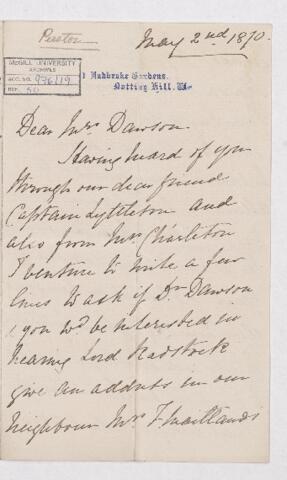 May 2nd 1870.
McGILL UNIVERSITY
ARCHIVES
ACC. NO. 976/19
REF. 50
Ladbroke Gardens.
Notting Hill. W.
Dear Mrs Dawson.
Having heard of you
through our dear friend
Captain Lyttleton and
also from Mrs Charleton
I venture to write a few
lines to ask if Dr Dawson
you wd be interested in
hearing Lord Radstock
give an address in our
neighbour Mrs F Maitlands